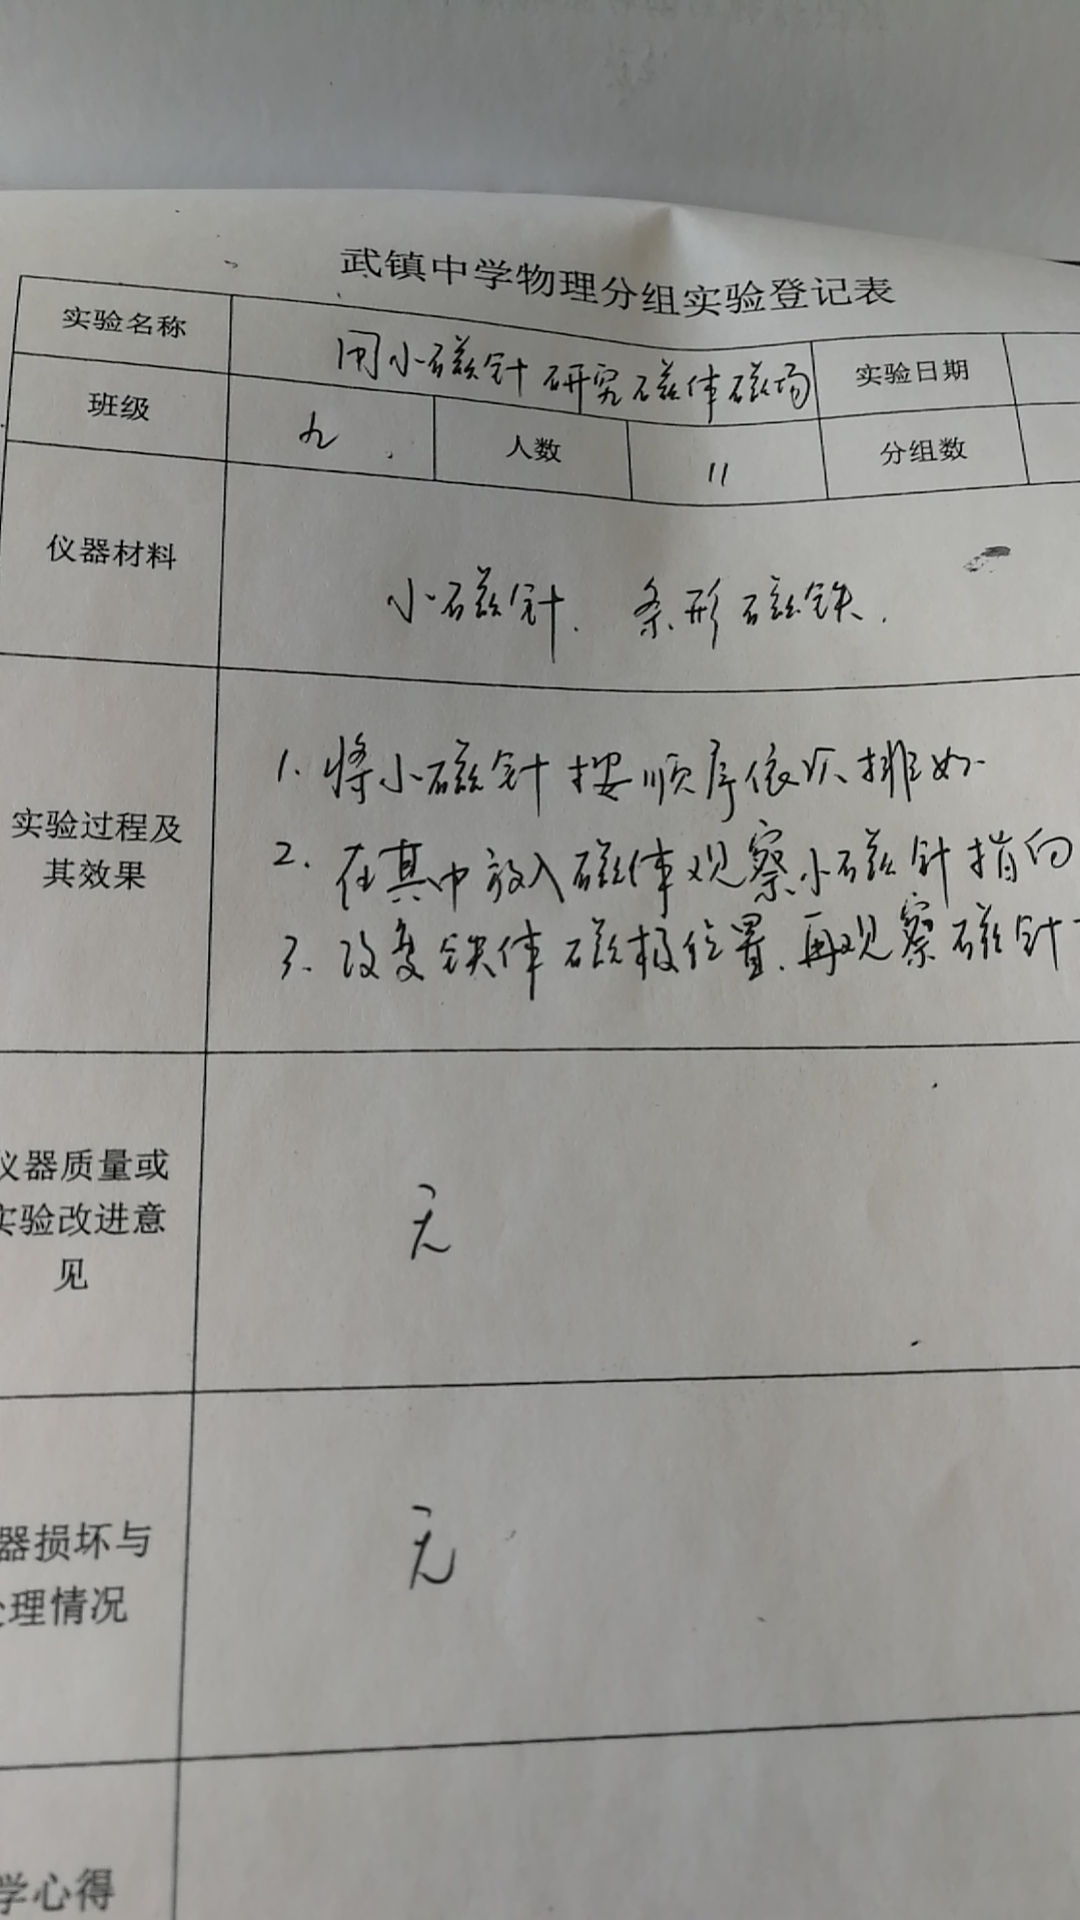 武镇中学物理分组实验登记表
实验名称 用小磁针研究磁体磁场 实验日期
班级 九 人数 11 分组数
仪器材料 小磁针、条形磁铁.
实验过程及
其效果
1. 将小磁针按顺序依次排好
2. 在其中放入磁体观察小磁针指向
3. 改变铁体磁极位置.再观察磁针
仪器质量或
实验改进意
见
无
器损坏与
处理情况
无
学心得